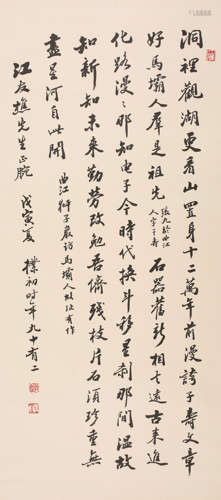 洞裡觀湖更看山置身十二萬年前漫誇子壽文章
好馬壩人羣是祖先
張九齡曲江
人字子壽
石器舊新相去遠古來進
化路漫漫那知電子今時代換斗移星剎那間溫故
知新知未來勤勞改勉吾儕殘枝片石須珍重無
盡星河自此開
曲江獅子巖訪馬壩人故址有作
江友樵先生正腕
戊寅夏
樸初時年九十有二